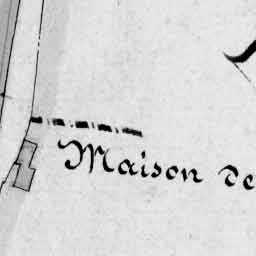 Maison de